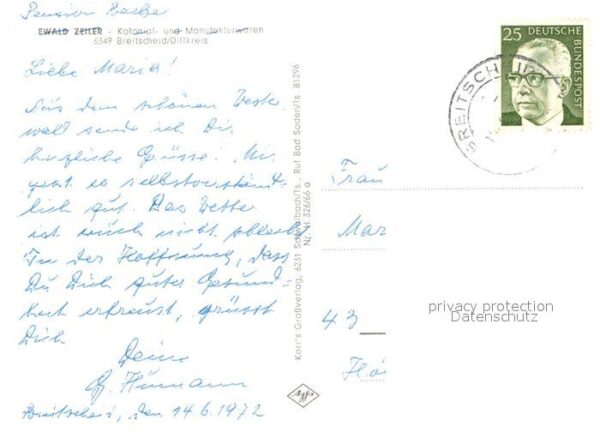 Pension
EWALD ZEILER - Kolonial- und Manufakturwaren
6349 Breitscheid/Dillkreis
Liebe Maria!
Aus dem schönen Wester
wald sende ich Dir
herzliche Grüsse. Mir
geht es selbstverständ-
lich gut. Das Wetter
ist auch nicht
In der Hoffnung, dass
Du Dich guter Gesund-
heit erfreust, grüsst
Dich
Deine
Breitscheid, den 14.6.1972
Karr's Großverlag, 6231 Schwalbach/Ts., Ruf Bad Soden/Ts. 81296
Nr. H 326/66 a
Agfa
25 DEUTSCHE
BUNDESPOST
BREITSCH
Frau
Mar
43
Hö
privacy protection
Datenschutz